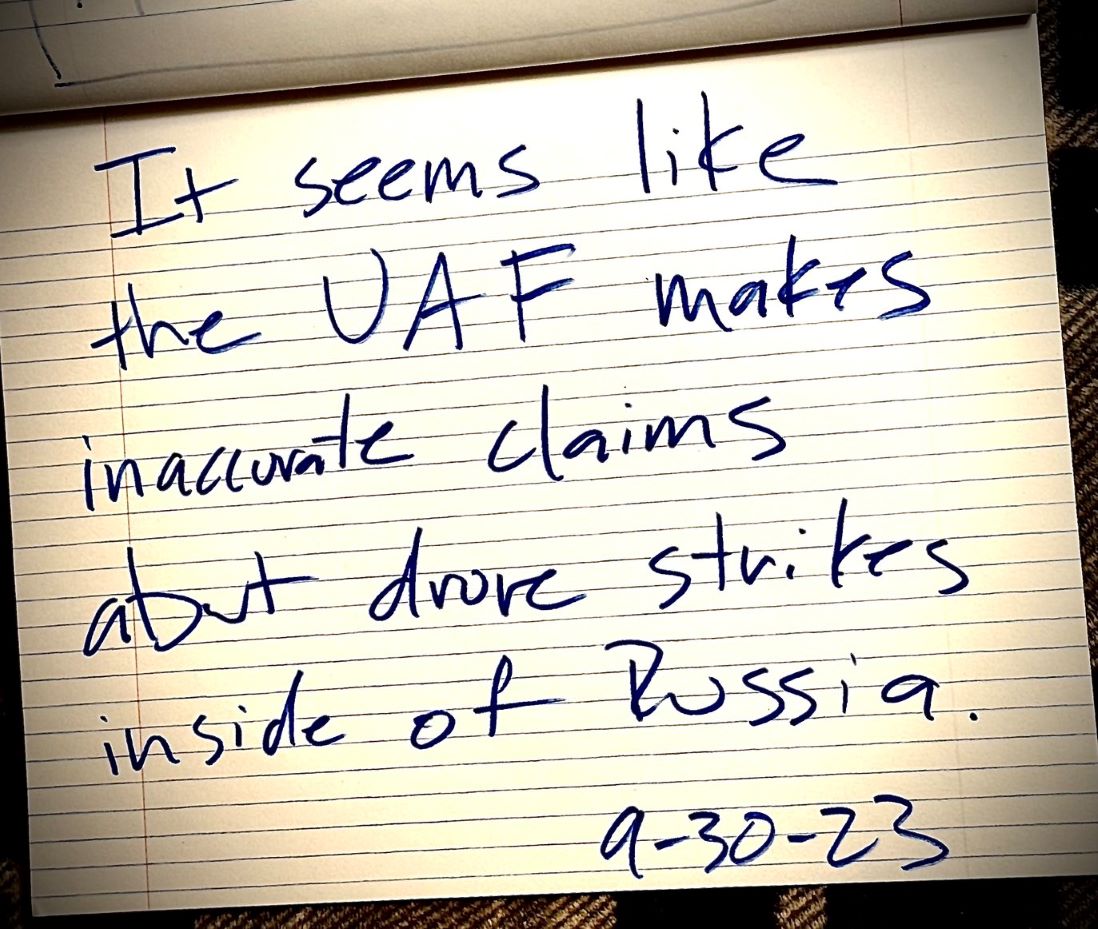 It seems like
the UAF makes
inaccurate claims
about drone strikes
inside of Russia.
9-30-23